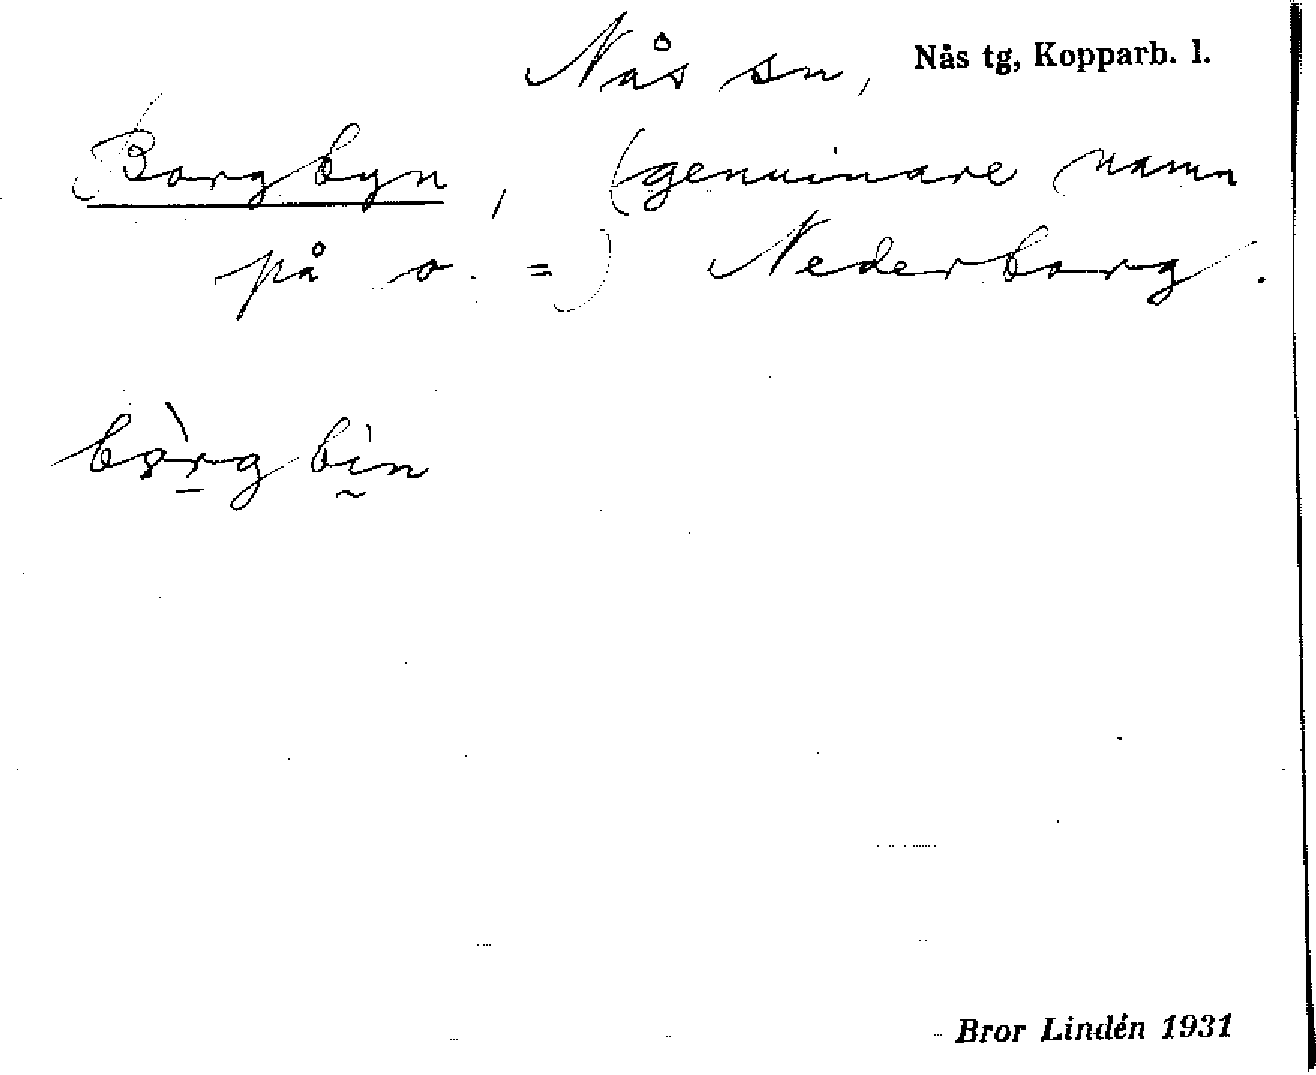 Nås sn, Nås tg, Kopparb. l.
Borgbyn, (genuinare namn
på o. =) Nederborg.
bòrgbìn
Bror Lindén 1931